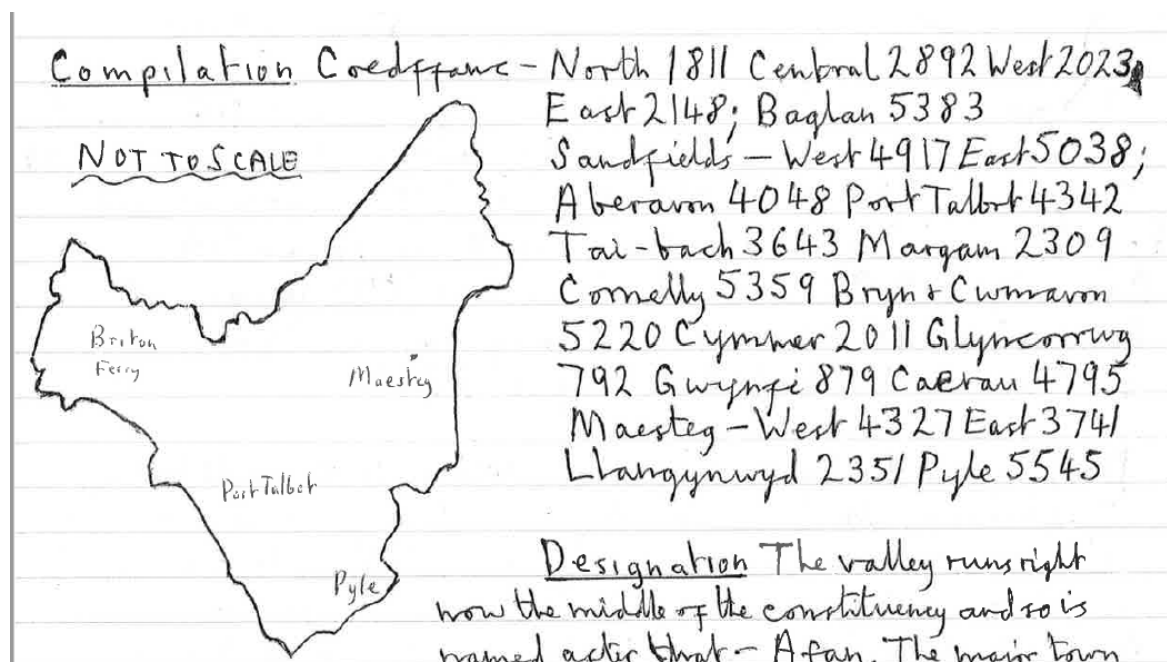 Compilation Coedffranc - North 1811 Central 2892 West 2023
East 2148; Baglan 5383
NOT TO SCALE
Sandfields - West 4917 East 5038;
Aberavon 4048 Port Talbot 4342
Tai-bach 3643 Margam 2309
Cornelly 5359 Bryn & Cwmavon
Briton
Ferry
5220 Cymmer 2011 Glyncorrwg
Maesteg
792 Gwynfi 879 Caerau 4795
Maesteg - West 4327 East 3741
Llangynwyd 2351 Pyle 5545
Port Talbot
Designation The valley runs right
Pyle
now the middle of the constituency and so is
named after that - Afan. The major town